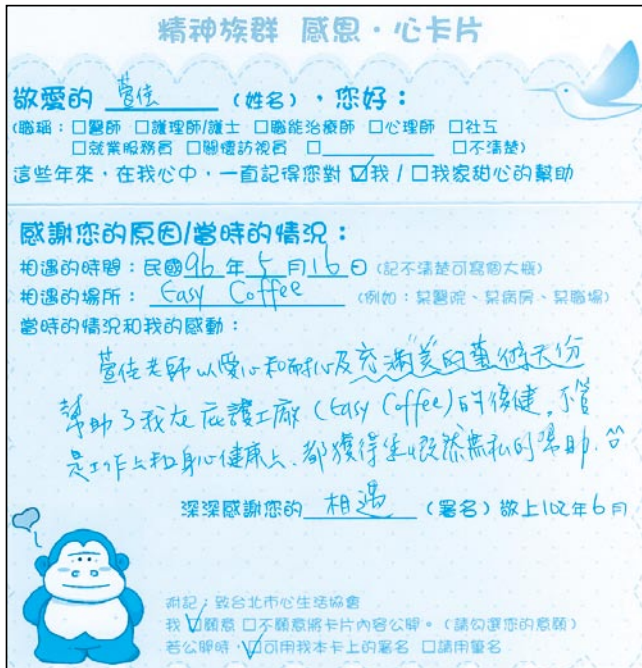 精神族群 感恩・心卡片
敬愛的 萱佳 (姓名),您好:
(職稱:□醫師 □護理師/護士 □職能治療師 □心理師 □社工
□就業服務員 □關懷訪視員 □ □不清楚)
這些年來,在我心中,一直記得您對 ☑我/□我家甜心的幫助
感謝您的原因/當時的情況:
相遇的時間:民國96年5月16日(記不清楚可寫個大概)
相遇的場所: Easy Coffee (例如:某醫院、某病房、某職場)
當時的情況和我的感動:
萱佳老師以愛心和耐心及充滿"美"的藝術天份
幫助了我在庇護工廠(Easy Coffee)的復健,不管
是工作上和身心健康上,都獲得無私的幫助.
深深感謝您的 相遇 (署名)敬上102年6月
附記:致台北市心生活協會
我 ☑願意 □不願意將卡片內容公開。(請勾選您的意願)
若公開時,☑可用我本卡上的署名 □請用筆名